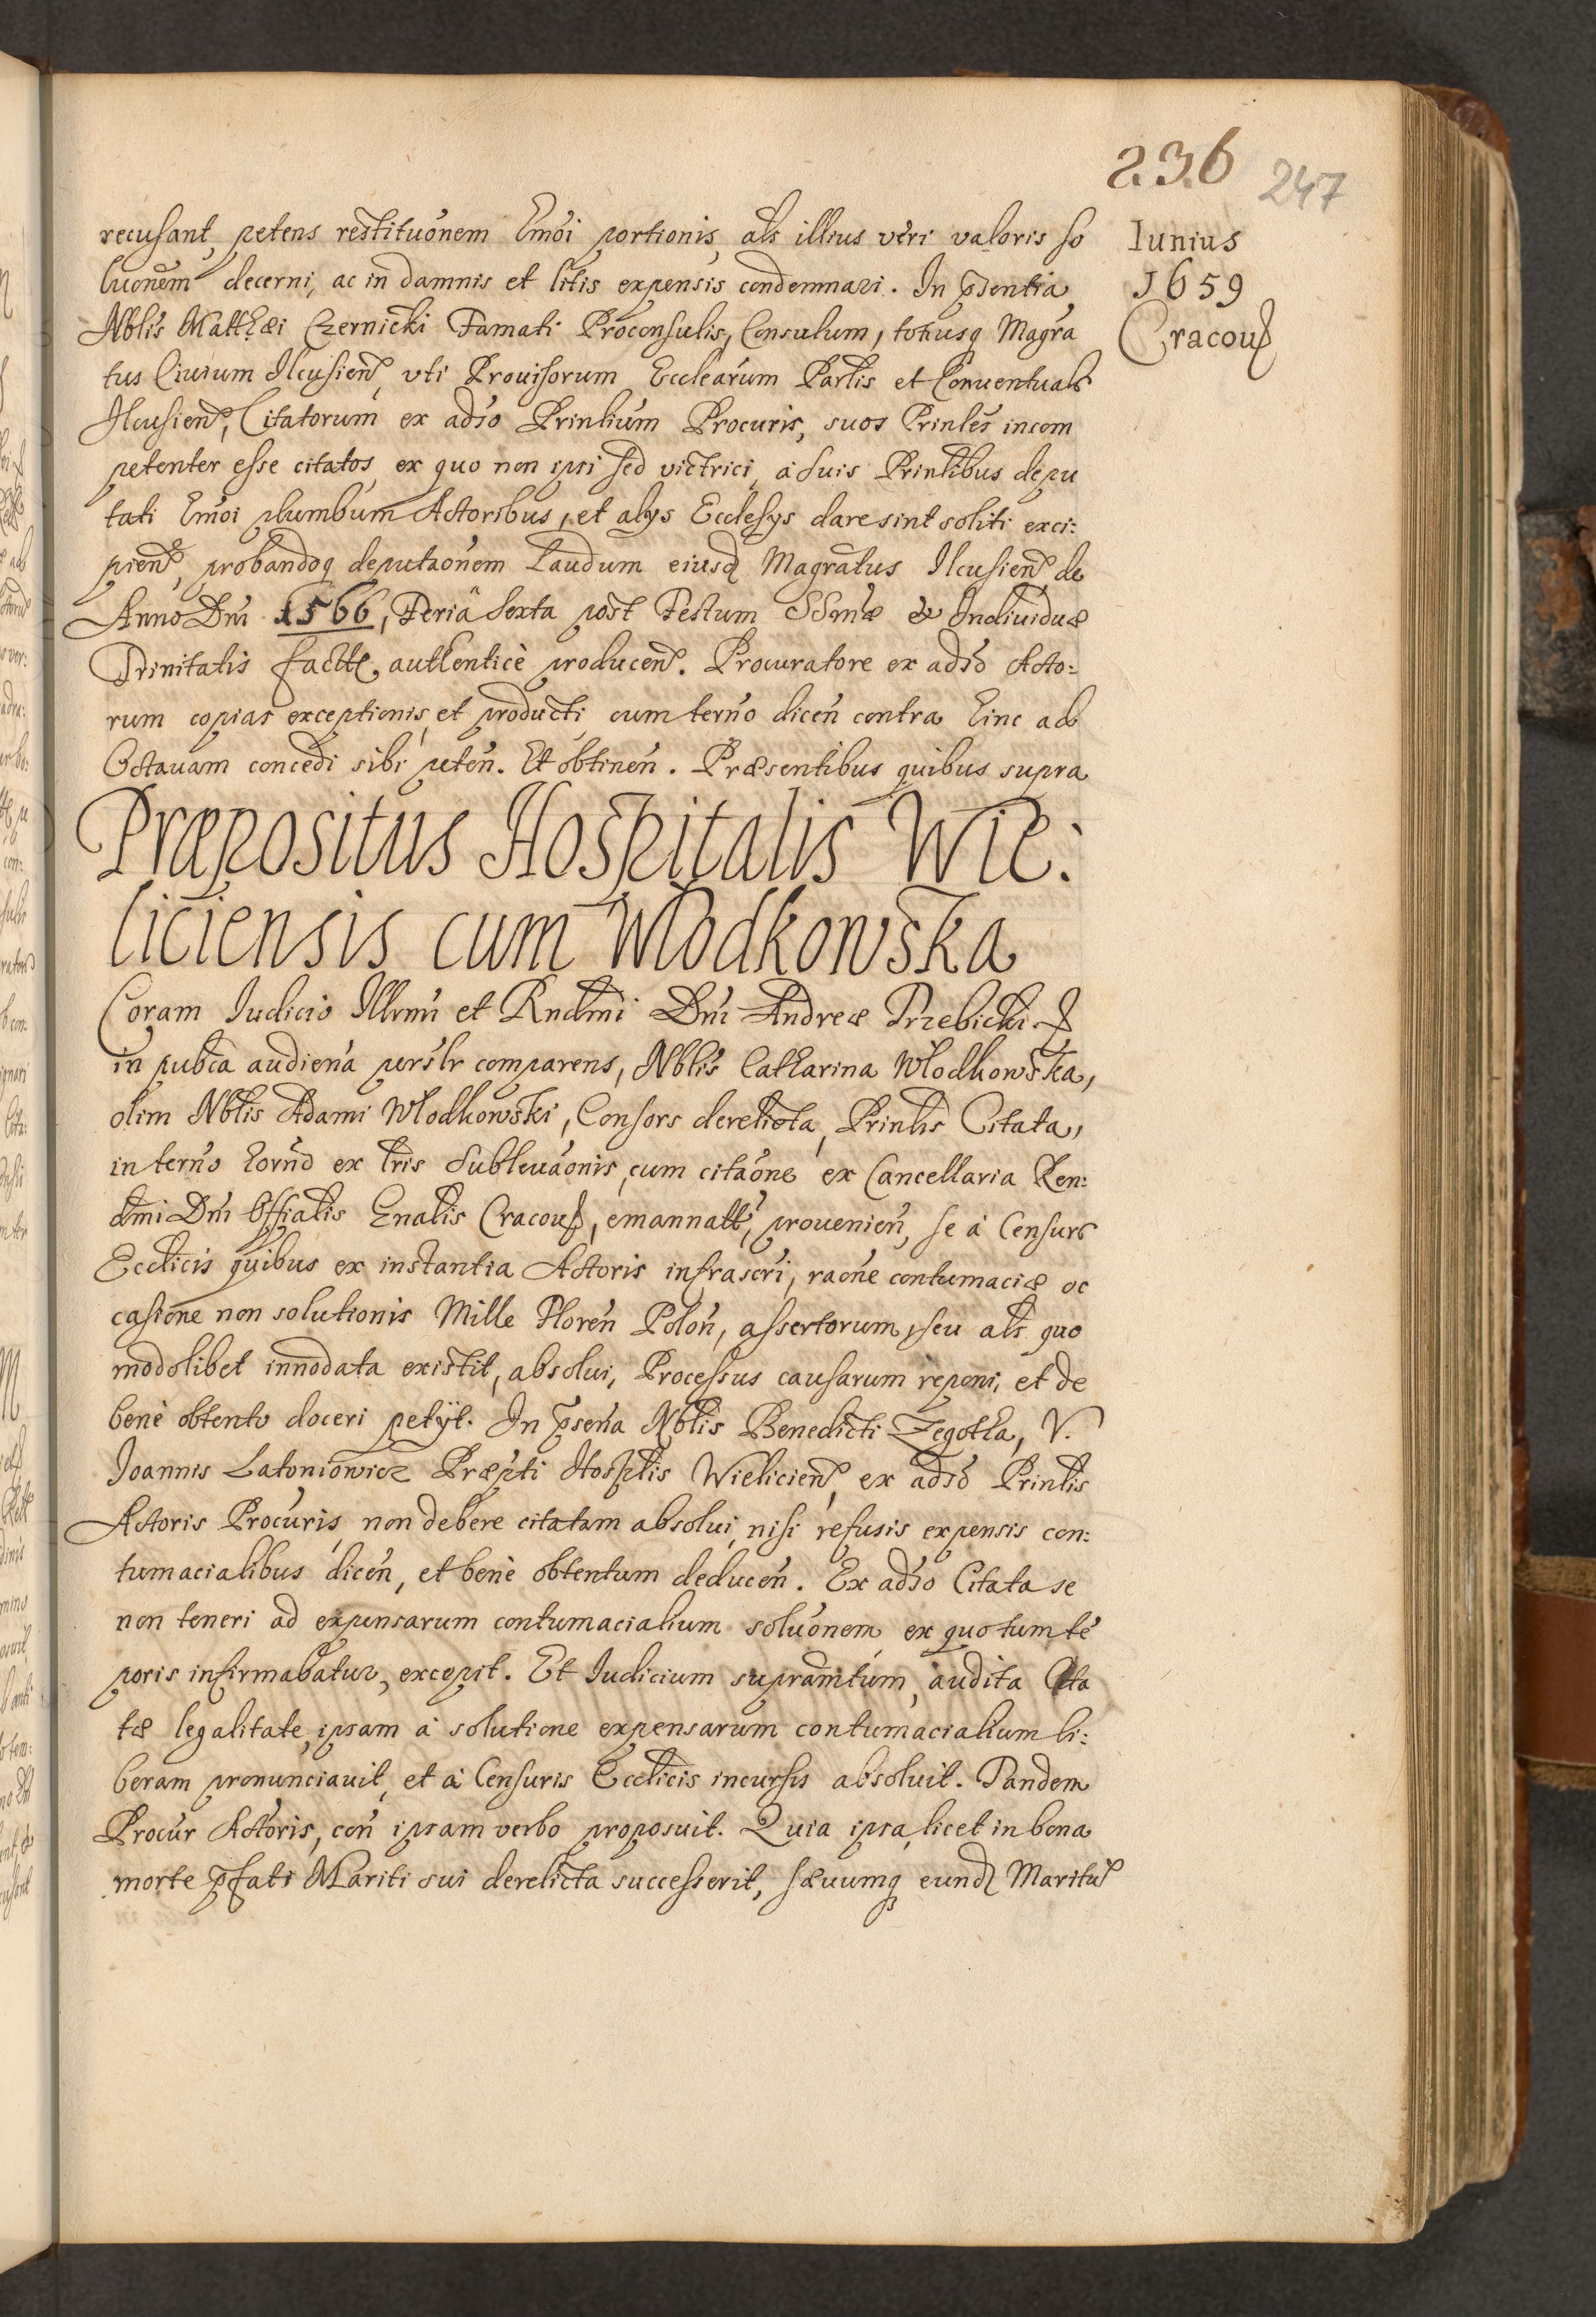 236 247
Iunius
1659
Cracouß
recusant, petens restituõnem Emõi portionis, als illius veri valoris so
luõnem decerni, ac in damnis et litis expensis condemnari. In p̃sentia
Nblis Matthæi Czernicki Famati Proconsulis, Consulum, totiusq Magra
tus Ciuium Ilcusien̄, vti Prouisorum Ecclearum Parlis et Conuentuals
Ilcusien̄, Citatorum ex adso Prinlium Procuris, suos Prinles incom
petenter esse citatos, ex quo non ipsi sed victrici, à suis Prinlibus depu
tati Emõi plumbum Actoribus, et alys Ecclesys dare sint soliti exci:
pien̄, probandoq deputaõnem Laudum eiusd Magratus Ilcusien̄ de
Anno Dni 1566, Feria Sexta post Festum SSmæ & Indiuiduæ
Trinitatis factte authenticè producen̄. Procuratore ex adso Acto:
rum copias exceptionis et producti cum termo dicen̄ contra hinc ad
Octauam concedi sibi peten̄. Et obtinen̄. Præsentibus quibus supra
Præpositus Hospitalis Wie:
liciensis cum Włodkowska
Coram Iudicio Illrmi et Rndmi Dni Andreæ Trzebicki
in pubca audiena perslr comparens, Nblis Catharina Włodkowska,
olim Nblis Adami Włodkowski, Consors derelicta, Prinlis Citata,
in termo horno ex lris Subleuaõnis, cum citaõne ex Cancellaria Ren:
dmi Dni Offialis Gnalis Cracouß, emannatt, prouenien̄, se à Censurs
Ecclicis quibus ex instantia Actoris infrascri, raõne contumaciæ oc
casione non solutionis Mille Floren̄ Polon̄, assertorum, seu als quo
modolibet innodata existit, absolui, Processus causarum reponi, et de
benè obtento doceri petÿt. In p̃sena Nblis Benedicti Zegotha, V.
Joannis Latoniowicz Præpti Hosptlis Wielicien̄, ex adso Prinlis
Actoris Procuris, non debere citatam absolui, nisi refusis expensis con:
tumacialibus dicen̄, et benè obtentum deducen̄. Ex adso Citata se
non teneri ad expensarum contumacialium soluõnem ex quo tum tē
poris infirmabatur, excepit. Et Iudicium supramtum, audita Cita
tæ legalitate, ipsam à solutione expensarum contumacialium li:
beram pronunciauit, et à Censuris Ecclicis incursis absoluit. Tandem
Procur Actoris, con̄ ipsam verbo proposuit. Quia ipsa, licet in bona
morte p̃fati Mariti sui derelicta successerit, sæuumq eund Maritū